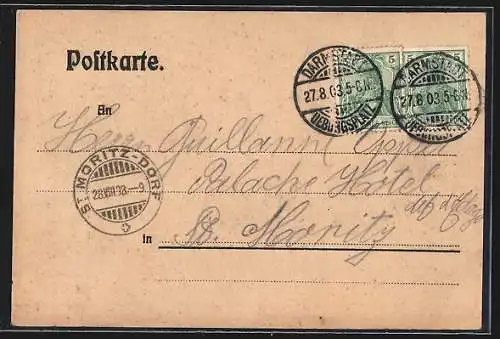 Postkarte.
5 5
DARMSTADT
27.8.03.5-6N.
ÜBUNGSPLATZ
DARMSTADT
27.8.03.5-6N.
ÜBUNGSPLATZ
An
Herrn Guillaume
Palace Hotel
ST. MORITZ-DORF
28.VIII.03.-9
in St. Moritz